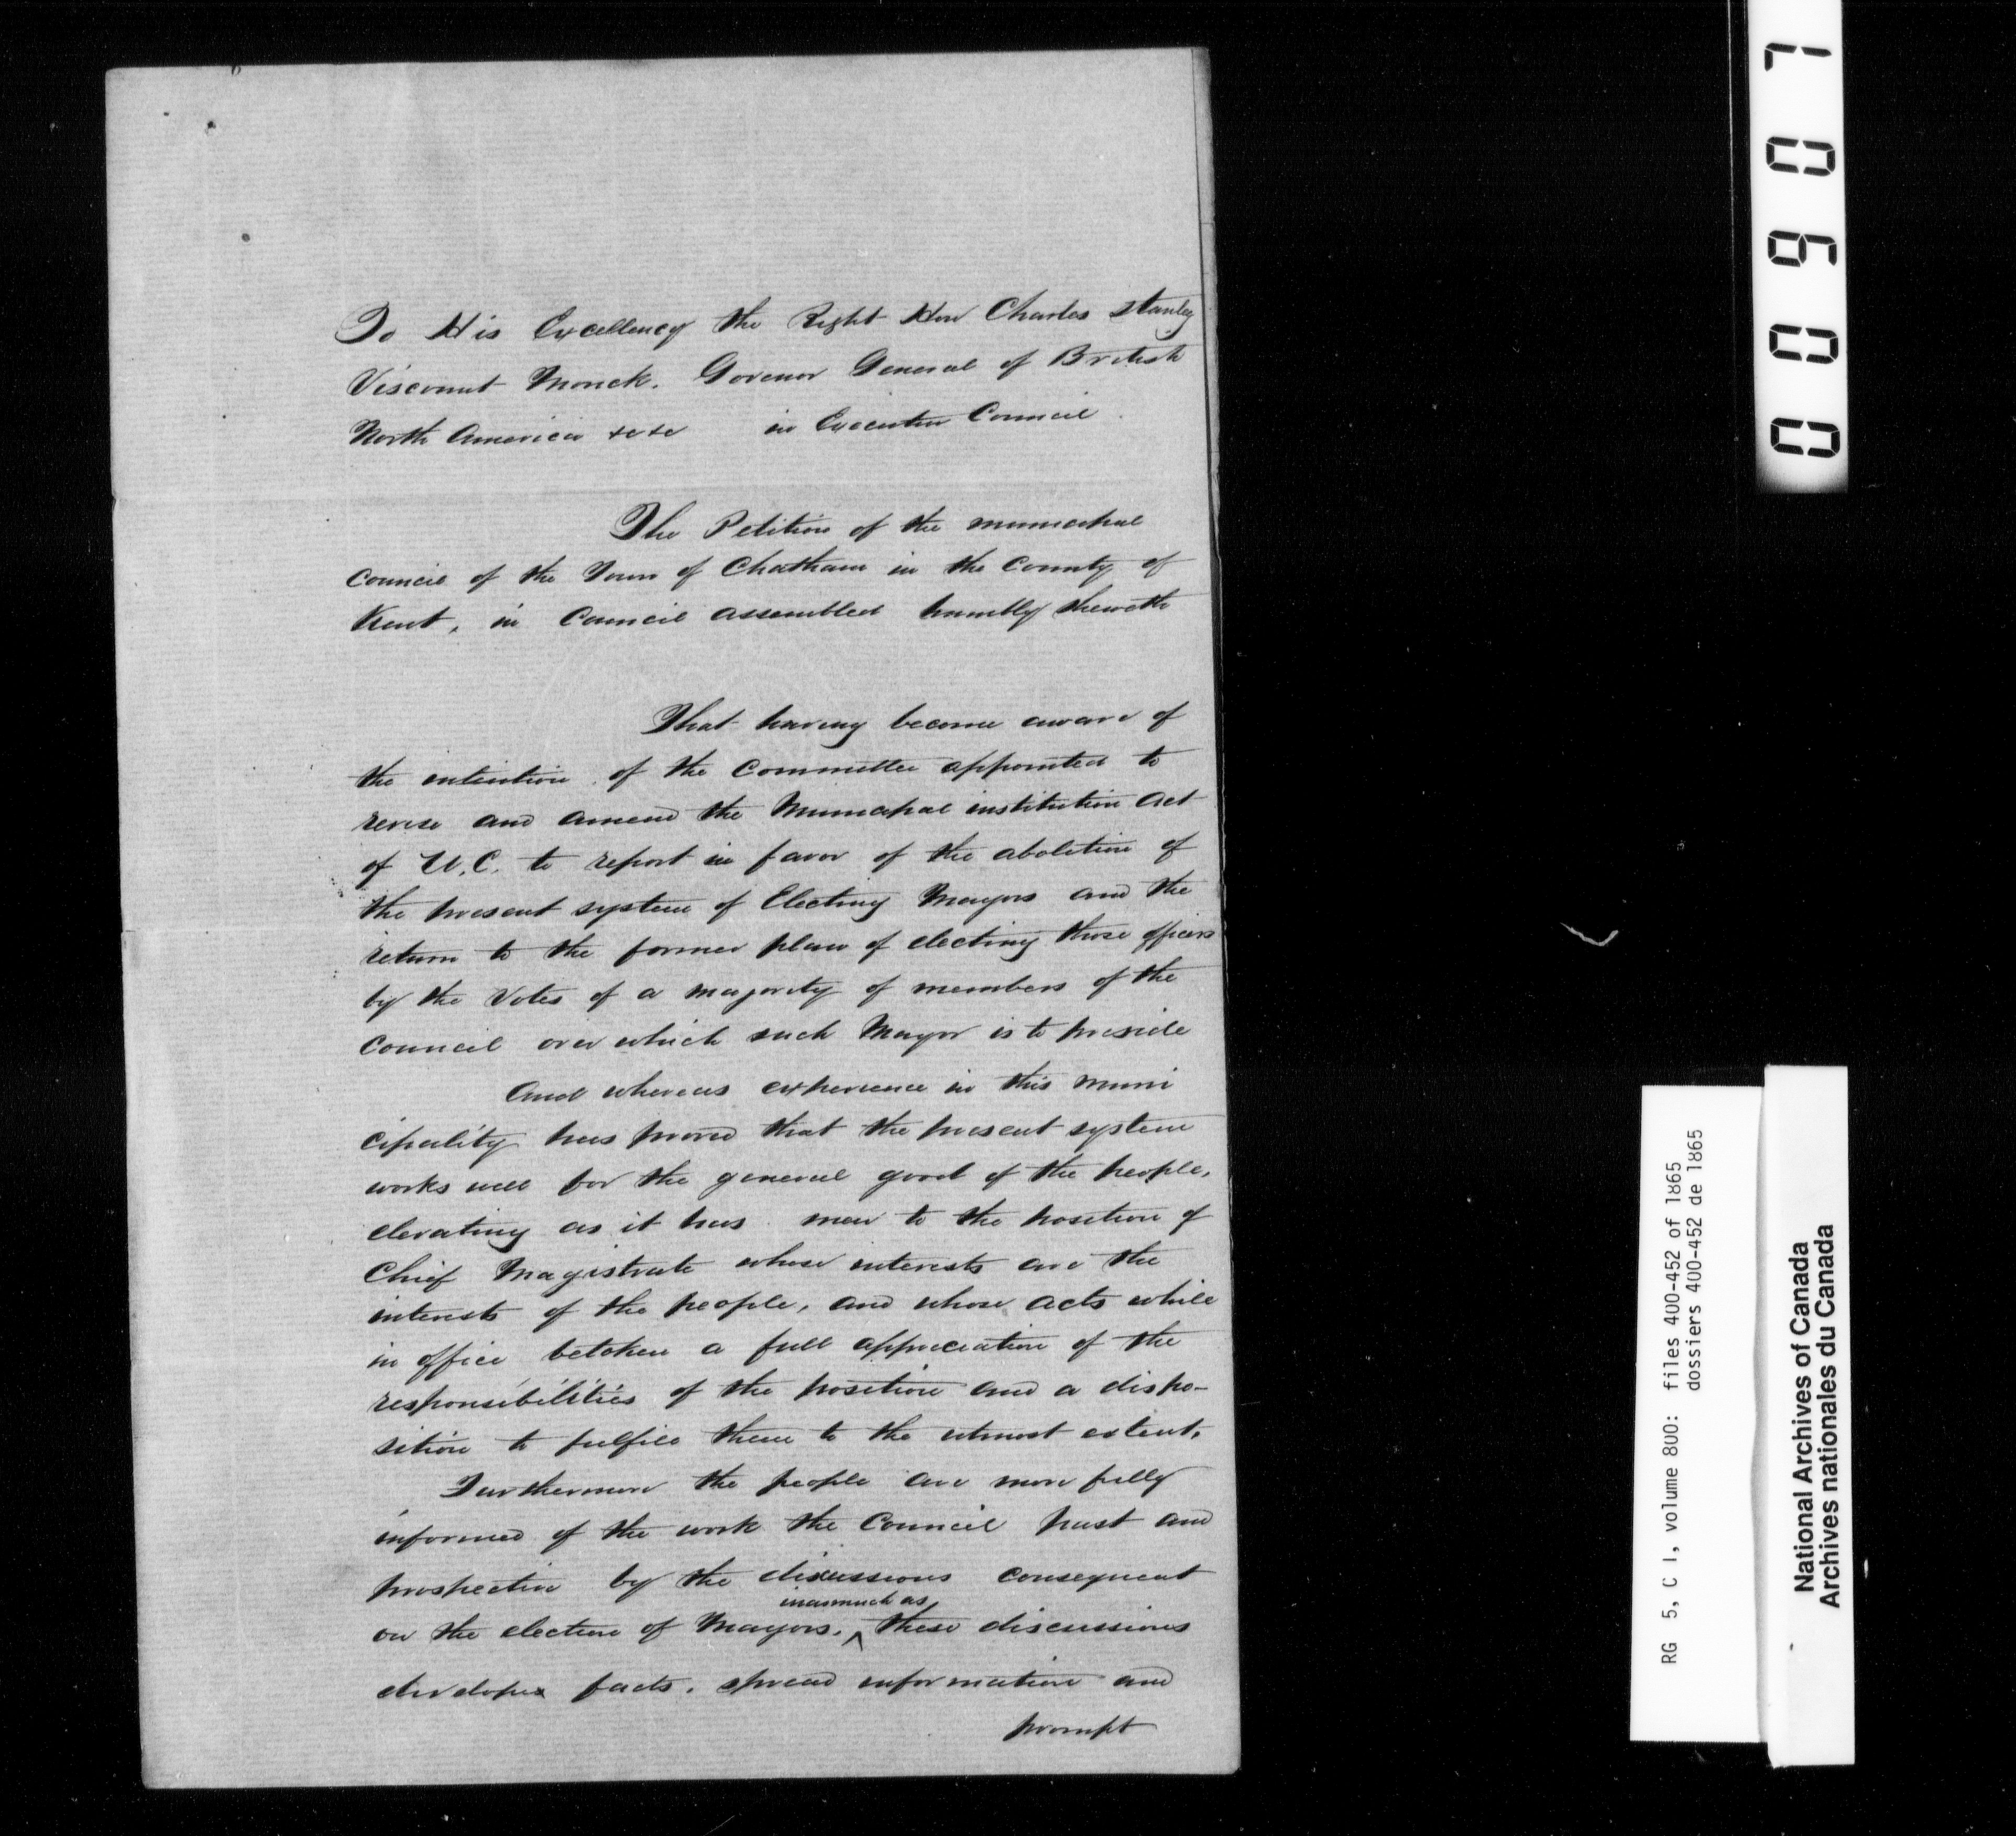 To His Excellency the Right Hon Charles Stanley
Viscount Monck. Govenor General of British
North America &c &c in Executive Council
The Petition of the municipal
Council of the Town of Chatham in the County of
Kent, in Council assembled humbly sheweth
That having become aware of
the intention of the Committee appointed to
revise and amend the Municipal institution Act
of U.C. to report in favor of the abolition of
the present system of Electing Mayors and the
return to the former plan of electing those officers
by the votes of a majority of members of the
Council over which such Mayor is to preside
And whereas experience in this muni
cipality has proved that the present system
works well for the general good of the people,
elevating as it has men to the position of
Chief Magistrate whose interests are the
interests of the people, and whose acts while
in office betoken a full appreciation of the
responsibilities of the position and a dispo-
sition to fulfill them to the utmost extent.
Furthermore the people are more fully
informed of the work the Council past and
prospective by the discussions consequent
inasmuch as
on the election of Mayors. ^ these discussions
develope facts, spread information and
prompt
00907
RG 5, C 1, volume 800: files 400-452 of 1865
dossiers 400-452 de 1865
National Archives of Canada
Archives nationales du Canada